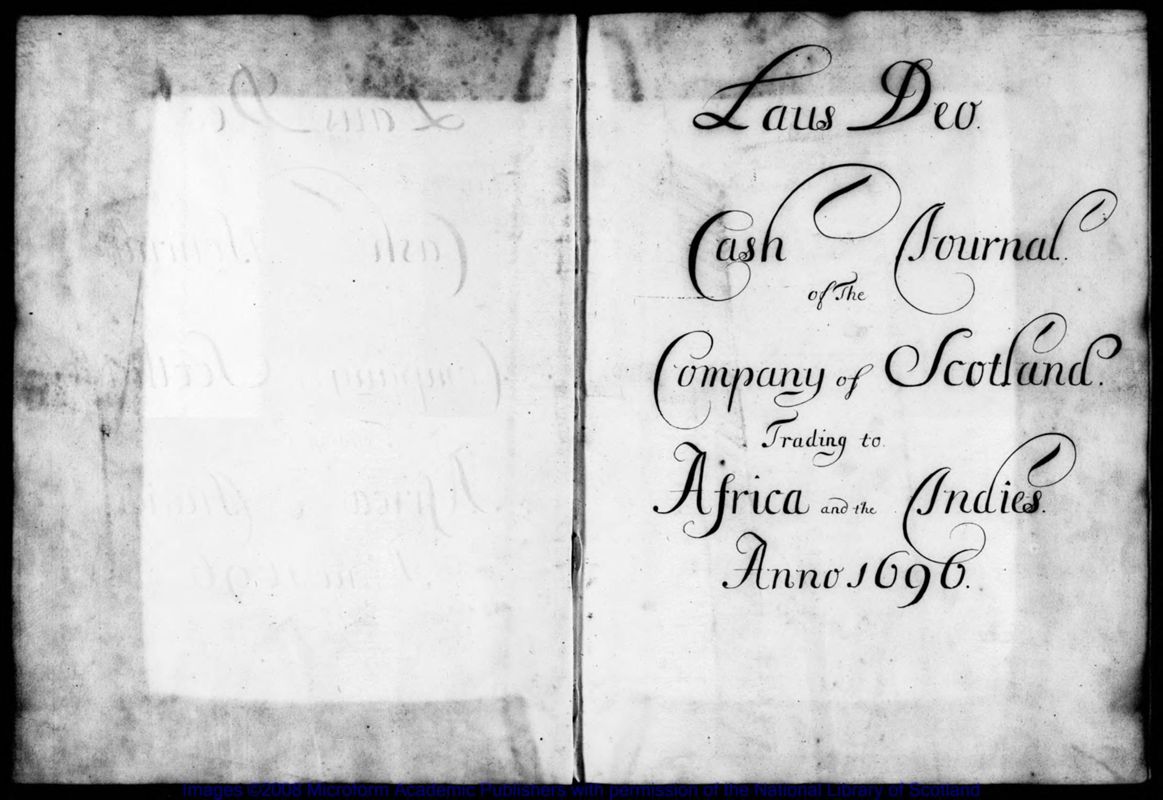 Laus Deo.
Cash Journal.
of The
Company of Scotland.
Trading to
Africa and the Indies.
Anno 1696.
Images ©2008 Microform Academic Publishers with permission of the National Library of Scotland